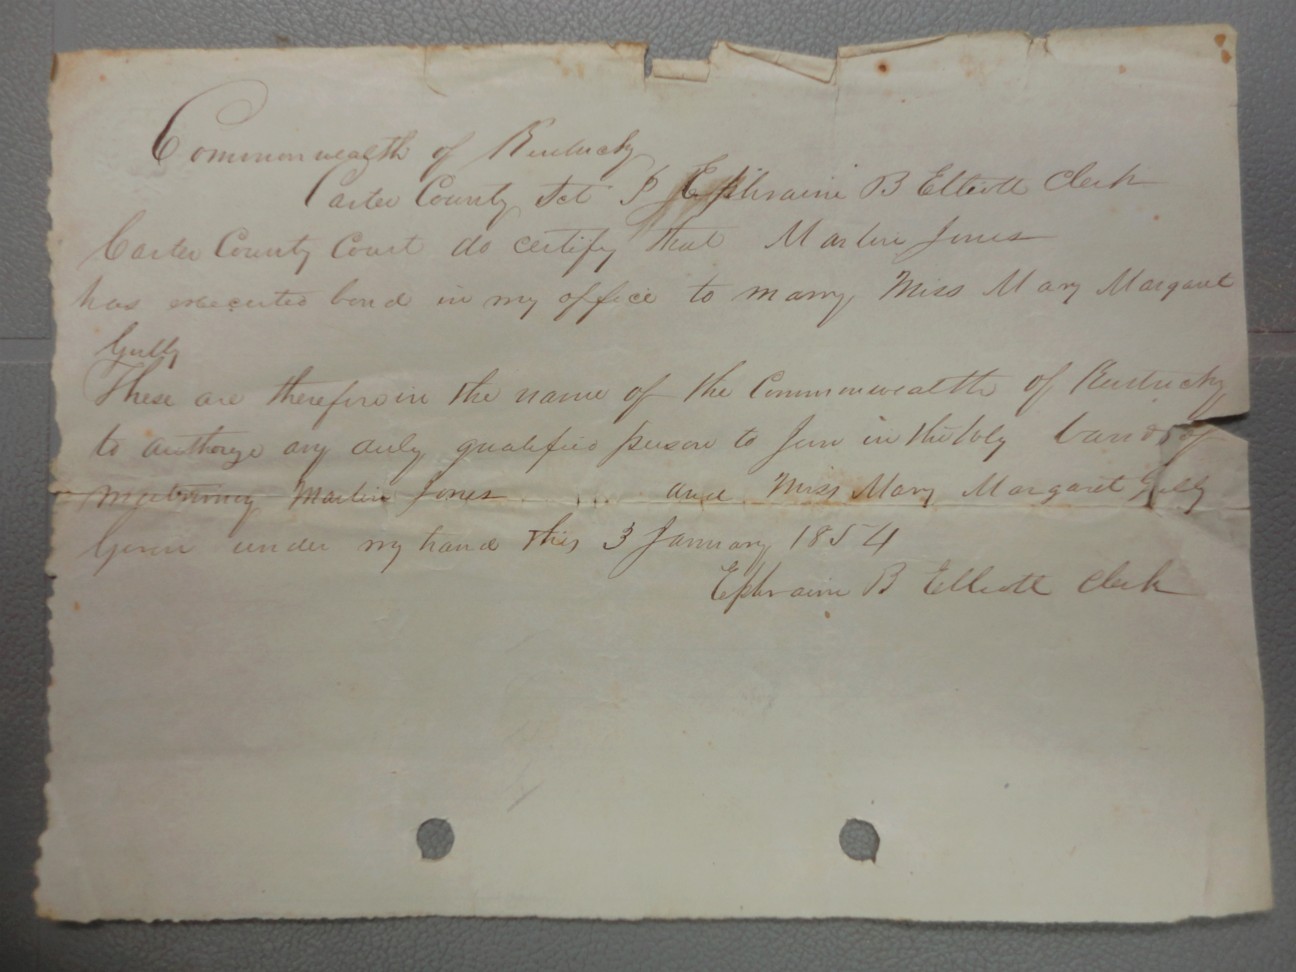 Commonwealth of Kentucky
Carter County Sct I Ephraim B Elliott Clerk
Carter County Court do certify that Martin Jones
has executed bond in my office to marry Miss Mary Margaret
These are therefore in the name of the Commonwealth of Kentucky
to authorze any duly qualified person to Join in the holy bands of
matrimony Martin Jones and Miss Mary Margaret
Given under my hand this 3 January 1854
Ephraim B Elliott Clerk